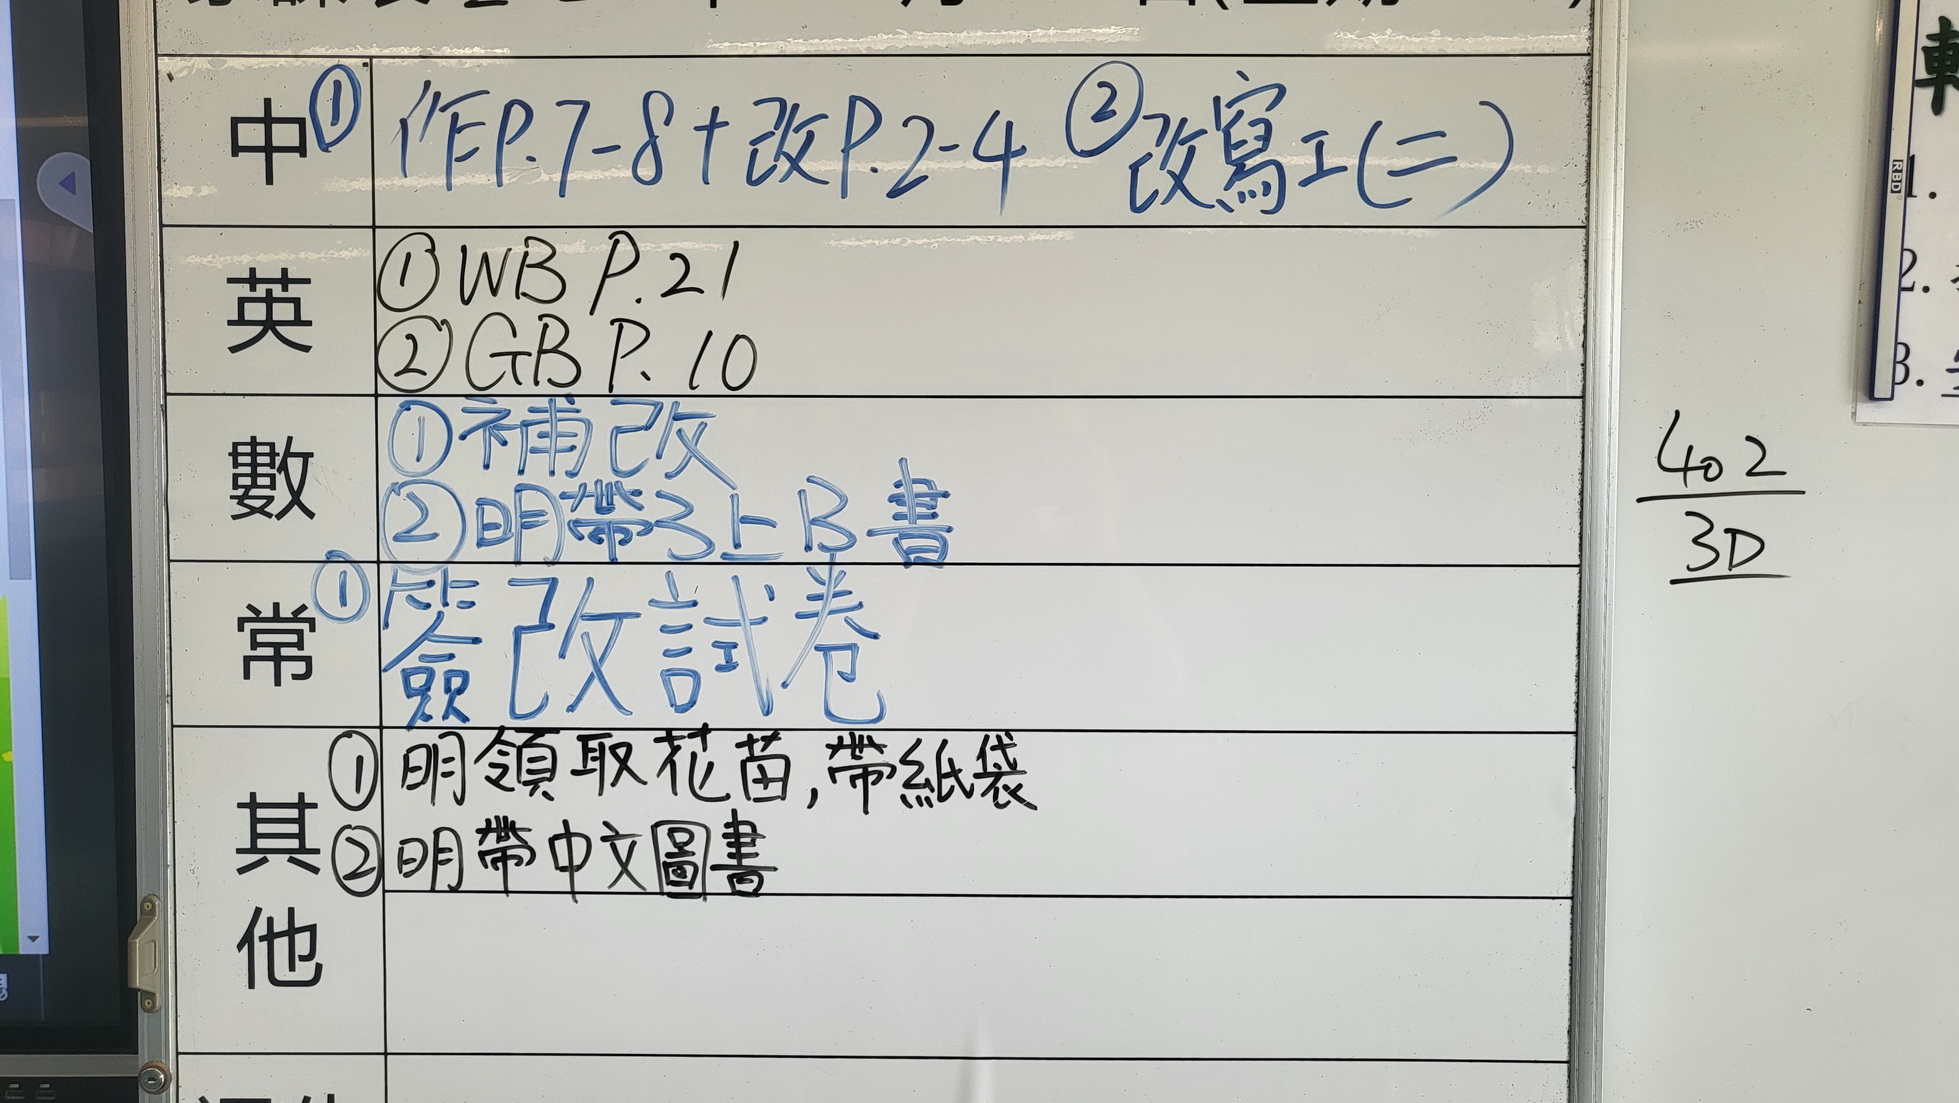 中 ① 作P.7-8+改P.2-4 ② 改寫工(二)
英 ① WB P.21
② GB P.10
數 ① 補改
② 明帶3上B書
常 ① 簽改試卷
其他 ① 明領取花苗,帶紙袋
② 明帶中文圖書
402
3D
RBD
1.
2.
3.